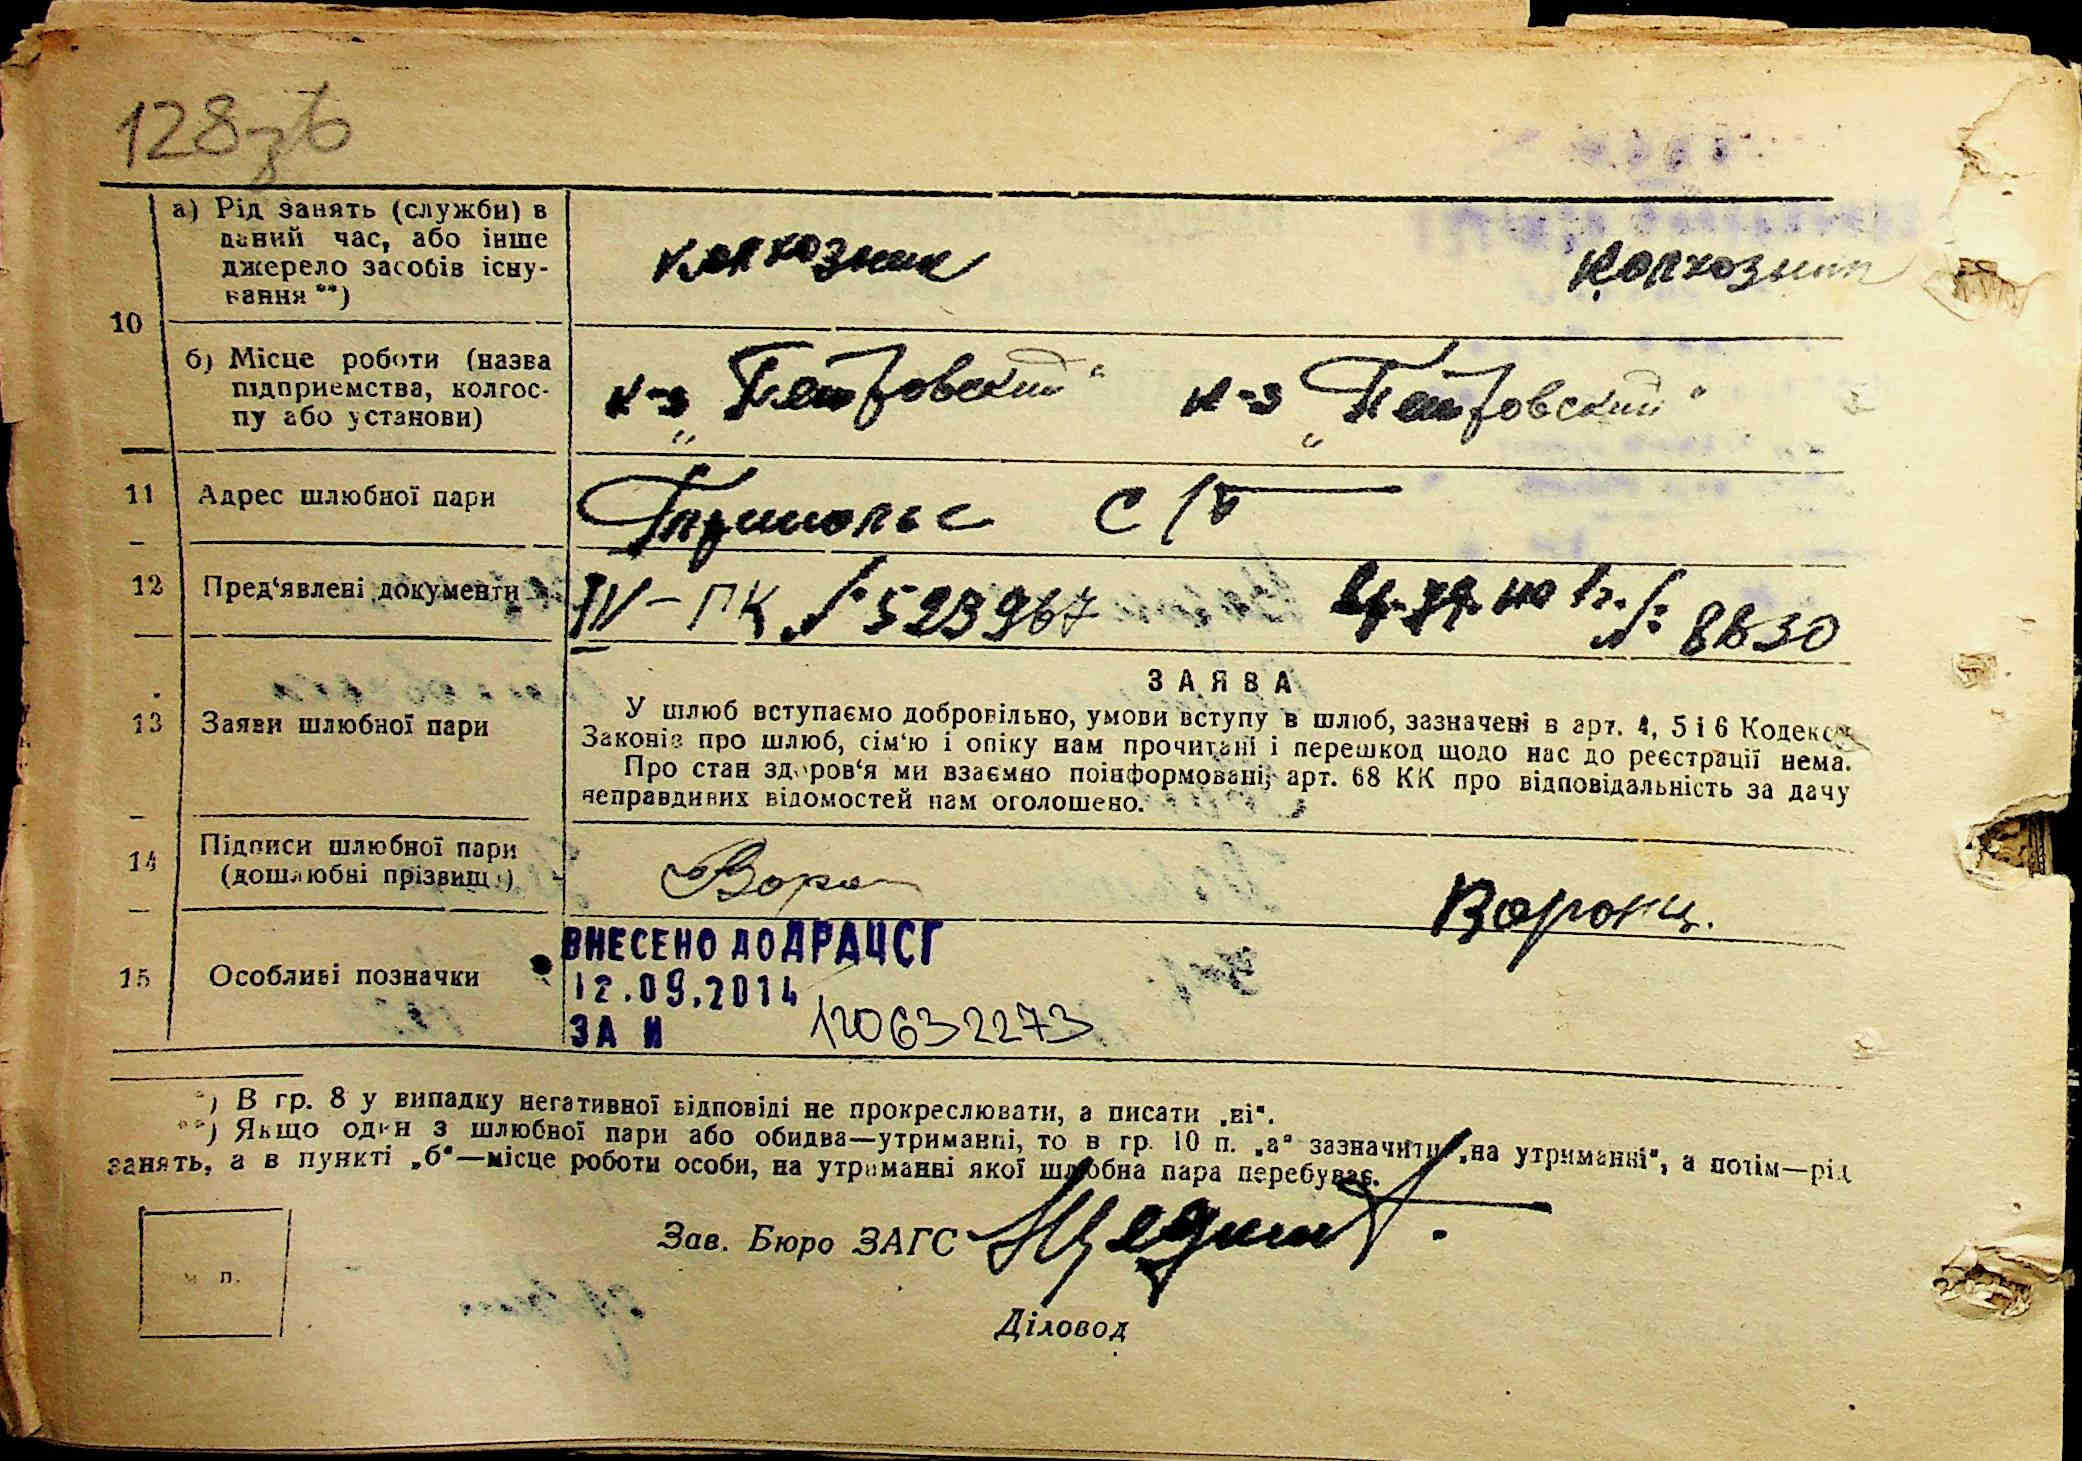 128зв
10
а) Рід занять (служби) в
даний час, або інше
джерело засобів існу-
вання **)
колхозник
колхозник
б) Місце роботи (назва
підприємства, колгос-
пу або установи)
к-з „Петровский“
к-з „Петровский“
11 Адрес шлюбної пари
12 Пред‘явлені документи
IV-ПК № 523967
№ 8830
13 Заяви шлюбної пари
ЗАЯВА
У шлюб вступаємо добровільно, умови вступу в шлюб, зазначені в арт. 4, 5 і 6 Кодексу
Законів про шлюб, сім‘ю і опіку нам прочитані і перешкод щодо нас до реєстрації нема.
Про стан здоров‘я ми взаємно поінформовані; арт. 68 КК про відповідальність за дачу
неправдивих відомостей нам оголошено.
14 Підписи шлюбної пари
(дошлюбні прізвища)
Воронц.
15 Особливі позначки
ВНЕСЕНО ДО ДРАЦСГ
12.09.2014
ЗА №
120632273
*) В гр. 8 у випадку негативної відповіді не прокреслювати, а писати „ні“.
**) Якщо один з шлюбної пари або обидва—утриманці, то в гр. 10 п. „а“ зазначити „на утриманні“, а потім—рід
занять, а в пункті „б“—місце роботи особи, на утриманні якої шлюбна пара перебуває.
Зав. Бюро ЗАГС
м п.
Діловод